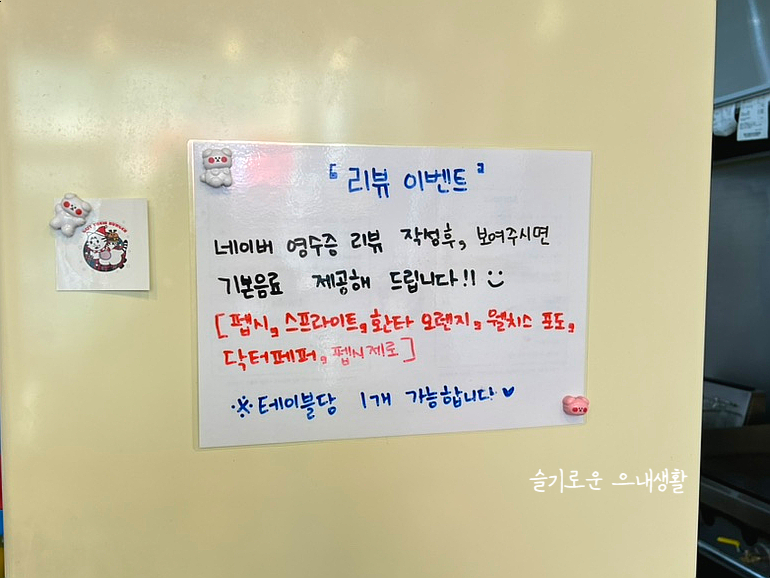 「리뷰 이벤트」
네이버 영수증 리뷰 작성후, 보여주시면
기본음료 제공해 드립니다!!
[펩시, 스프라이트, 환타 오렌지, 웰치스 포도,
닥터페퍼, 펩시제로]
※테이블당 1개 가능합니다♥
슬기로운 으내생활